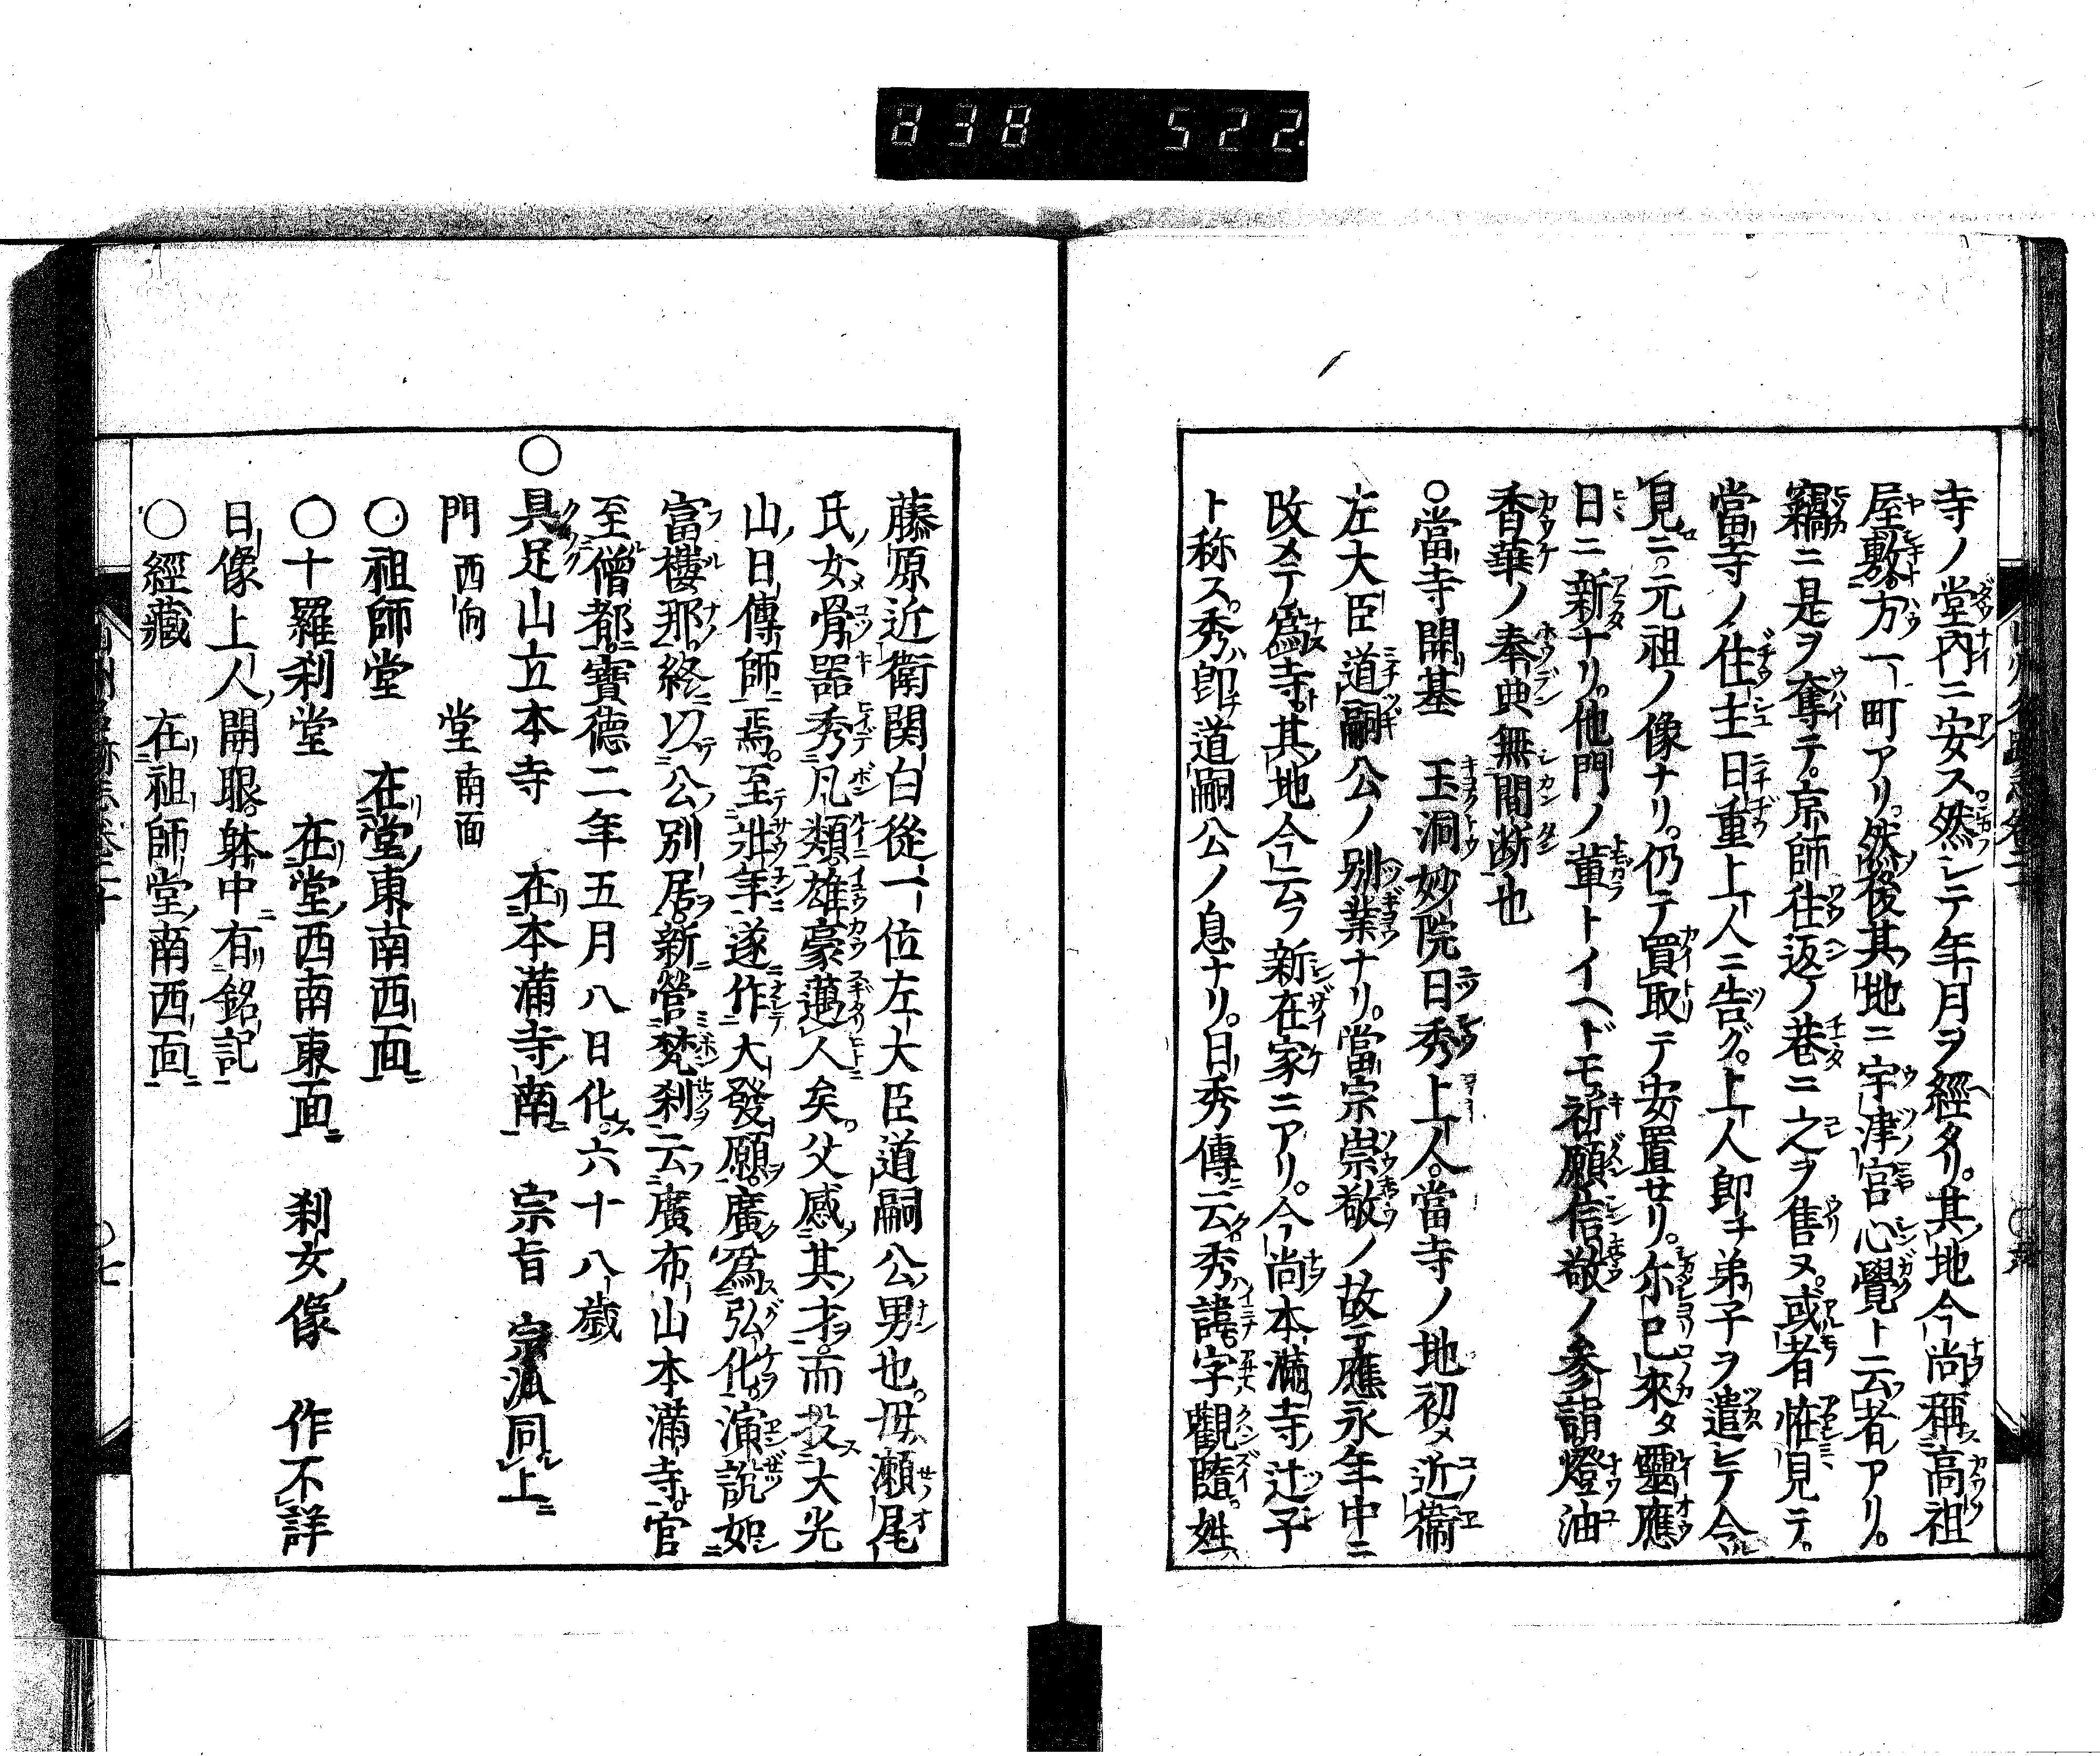 838 522
寺ノ堂内ニ安ス。然シテ年月ヲ經タリ。其地今尚稱高祖
屋敷。方一町アリ。然後其地ニ宇津宮心覺ト云者アリ。
竊ニ是ヲ奪テ。京師往返ノ巷ニ之ヲ售ヌ。或者恠見テ。
當寺ノ住主日重上人ニ告グ。上人即チ弟子ヲ遣シテ令
見ニ。元祖ノ像ナリ。仍テ買取テ安置セリ。尓已來タ靈應
日ニ新ナリ。他門ノ輩トイヘドモ。祈願信敬ノ參詣燈油
香華ノ奉典無間断也
○當寺開基 玉洞妙院日秀上人。當寺ノ地初メ近衞
左大臣道嗣公ノ別業ナリ。當宗崇敬ノ故ニ應永年中ニ
改メテ爲寺。其地今云フ新在家ニアリ。今尚本滿寺ノ辻子
ト称ス。秀ハ即チ道嗣公ノ息ナリ。日秀傳ニ云ク。秀諱ハ。字觀隨。姓ハ
藤原近衛関白從一位左大臣道嗣公ノ男也。母ハ瀬尾
氏ノ女。骨器秀凡類。雄豪邁人矣。父感其才。而投大光
山ノ日傳師焉。至壯年遂作大發願。廣爲弘化。演説如
富樓那。終以公ノ別居。新營梵刹。云廣布山本滿寺。官
至僧都。寶德二年五月八日化ス。六十八歲
○具足山立本寺 在本滿寺ノ南 宗旨 宗派同上
門 西向 堂 南面
○祖師堂 在堂ノ東南西面
○十羅刹堂 在堂ノ西南東面 刹女ノ像 作不詳
日像上人ノ開眼。躰中有銘記
○經藏 在祖師堂ノ南西面